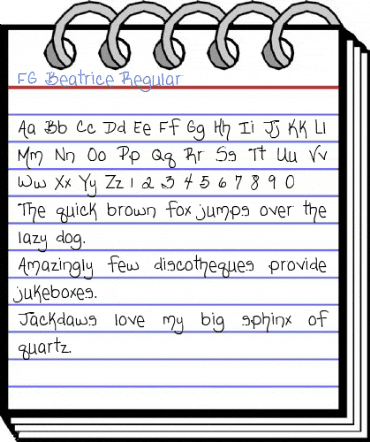 FG Beatrice Regular
Aa Bb Cc Dd Ee Ff Gg Hh Ii Jj Kk Ll
Mm Nn Oo Pp Qq Rr Ss Tt Uu Vv
Ww Xx Yy Zz 1 2 3 4 5 6 7 8 9 0
The quick brown fox jumps over the
lazy dog.
Amazingly few discotheques provide
jukeboxes.
Jackdaws love my big sphinx of
quartz.